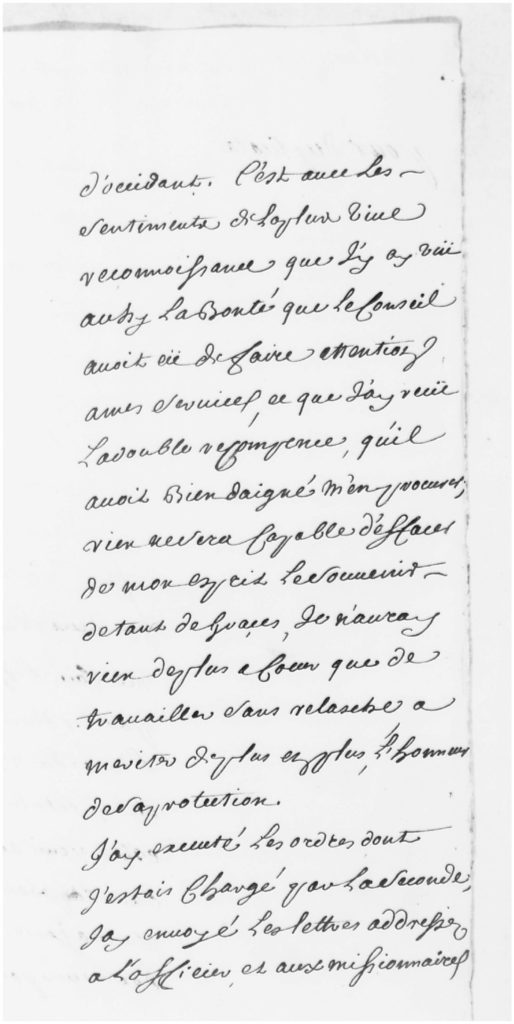 d'occidant. C'est avec Les
Sentiments de La plus vive
reconnoissance que J'y ay vüe
aussy La Bonté que Le Conseil
avoit eü de faire attention
a mes Services, et que J'ay reçüe
La double recompence, qu'il
avoit Bien daigné m'en procurer;
rien ne sera Capable d'effacer
de mon esprit Le Souvenir
de tant de Graces, Je n'auray
rien de plus a Coeur que de
travailler sans relasche a
meriter de plus en plus, L'honneur
de sa protection.
J'ay executé Les ordres dont
J'estais Chargé par La Seconde,
J'ay envoyé Les lettres addressez
a L'officier, et aux missionnaires